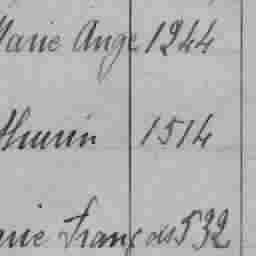 Marie Ange 1244
thurin 1514
arie Franç ds 532